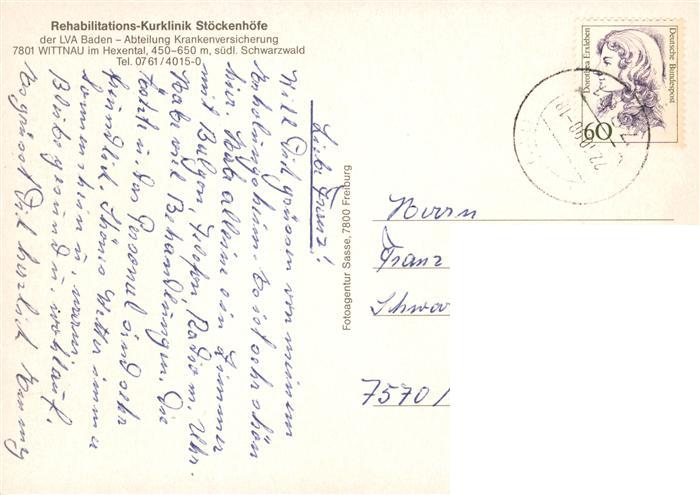 Rehabilitations-Kurklinik Stöckenhöfe
der LVA Baden – Abteilung Krankenversicherung
7801 WITTNAU im Hexental, 450–650 m, südl. Schwarzwald
Tel. 07 61 / 40 15-0
Lieber Franz!
Will Dich grüssen von meinem
Erholungsheim. Es ist sehr schön
hier. Habe allein ein Zimmer
mit Balgon, Telefon, Radio m. Uhr.
Habe viel Behandlungen. Die
Ärzte u. das Personal sind sehr
freundlich. Schönes Wetter immer
Sonnenschein u. warm.
Bleib gesund u. wohlauf.
Es grüsst Dich herzlich
Fotoagentur Sasse, 7800 Freiburg
Herrn
Franz
Schwa
7570/
Dorothea Erxleben
Deutsche Bundespost
60
22